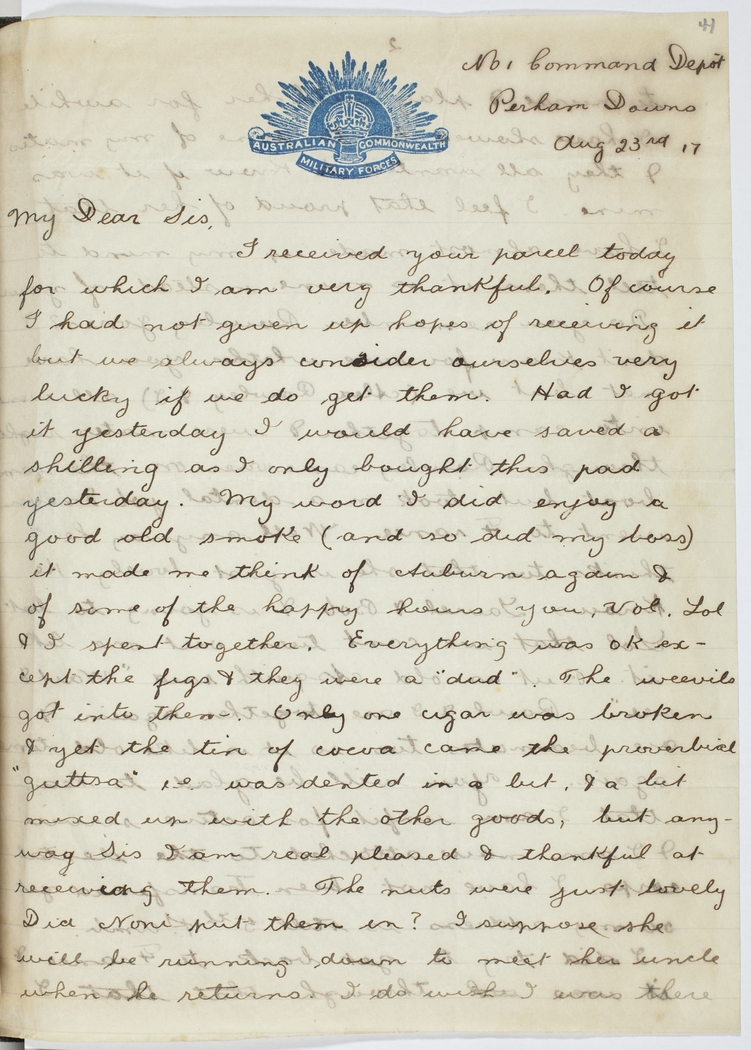 41
No 1 Command Depôt
Perham Downs
Aug 23rd 17
AUSTRALIAN COMMONWEALTH
MILITARY FORCES
My Dear Sis,
I received your parcel today
for which I am very thankful. Of course
I had not given up hopes of receiving it
but we always consider ourselves very
lucky if we do get them. Had I got
it yesterday I would have saved a
shilling as I only bought this pad
yesterday. My word I did enjoy a
good old smoke (and so did my boss)
it made me think of Auburn again &
of some of the happy hours you, Vol, Lol
& I spent together. Everything was OK ex-
cept the figs & they were a "dud". The weevils
got into them. Only one cigar was broken
& yet the tin of cocoa came the proverbial
"guttsa" i.e. was dented in a bit, & a bit
mixed up with the other goods, but any-
way Sis I am real pleased & thankful at
receiving them. The nuts were just lovely
Did Noni put them in? I suppose she
will be running down to meet her uncle
when he returns. I do wish I was there